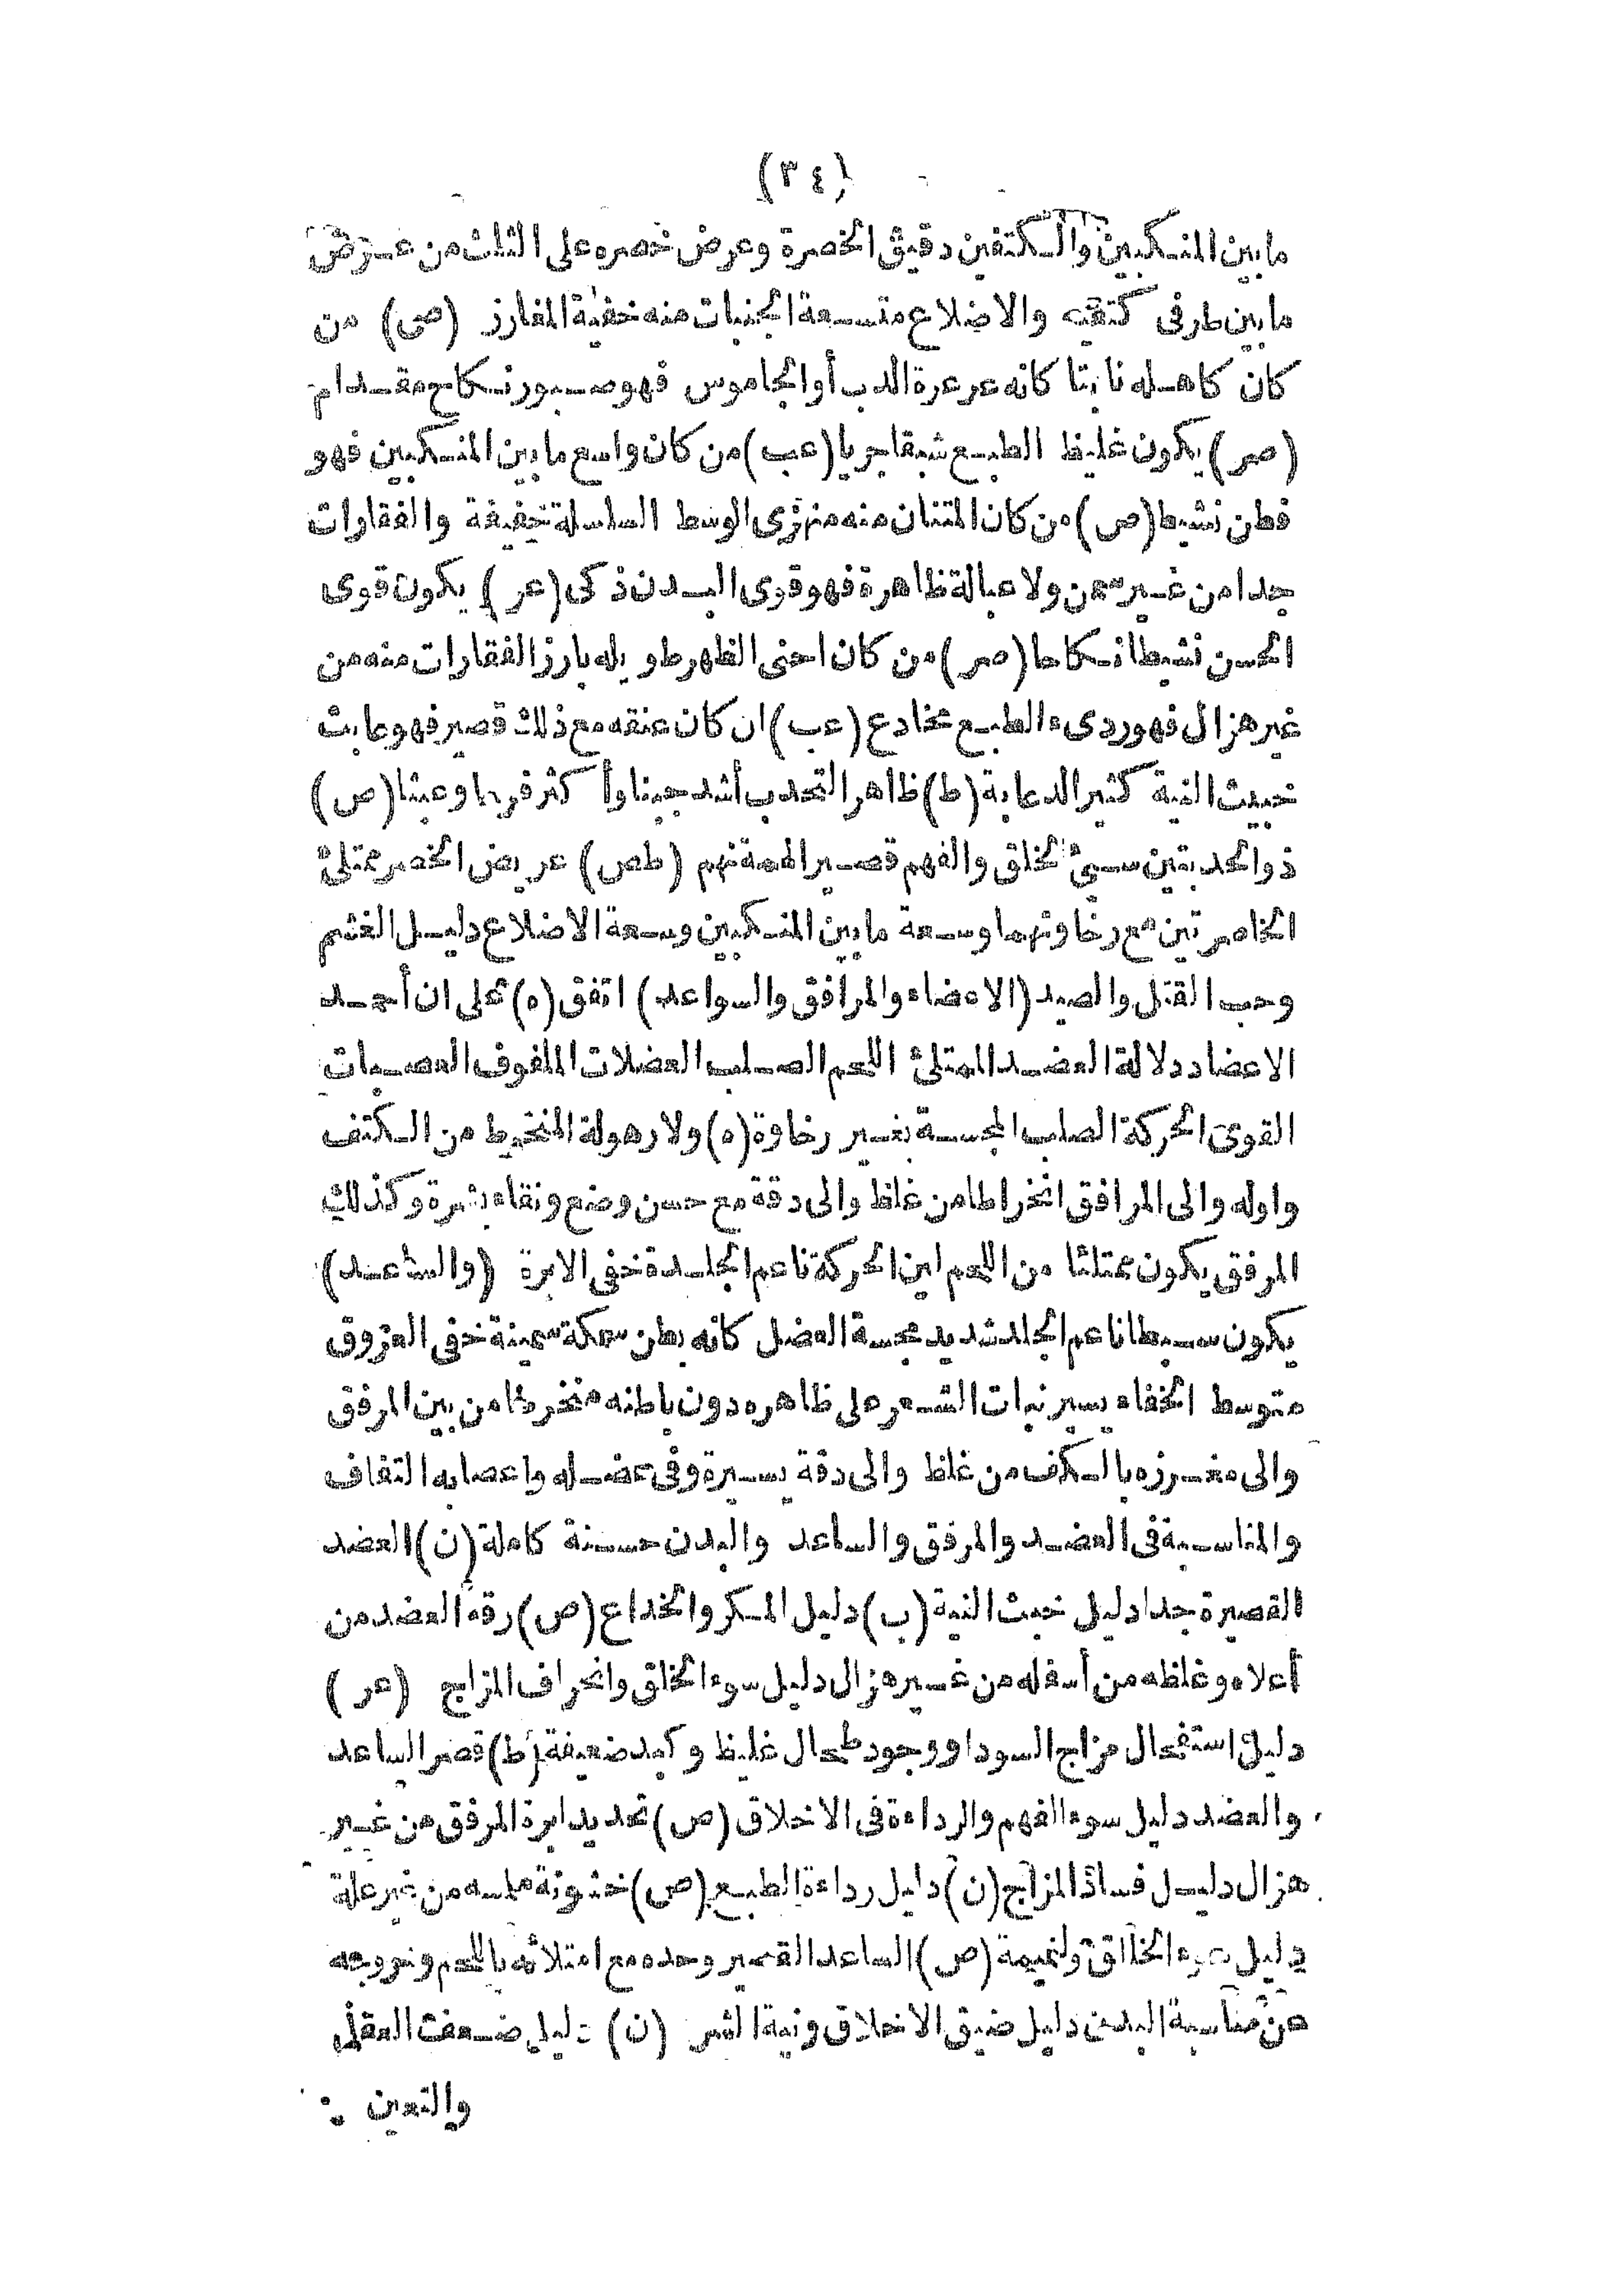 (٣٤)
ما بين المنكبين والكتفين دقيق الخصرة وعرض خصره على الثلث من عرض
ما بين طرفى كتفيه والاضلاع متسعة الجنبات منه خفية المغارز (صى) من
كان كاهله نابتا كانه عرعرة الدب أو الجاموس فهو صبور نكاح مقدام
(صر) يكون غليظ الطبع شبقا جريا (عب) من كان واسع ما بين المنكبين فهو
فطن نشيط (ص) من كان المتنان منه منزوى الوسط السلسلة خفيفة والفقاوات
جدا من غير سمن ولا عبالة ظاهرة فهو قوى البدن ذكى (عر) يكون قوى
الحسن نشيطا نكاحا (صر) من كان احنى الظهر طويله بارز الفقارات منه من
غير هزال فهو ردىء الطبع مخادع (عب) ان كان عنقه مع ذلك قصير فهو عابث
خبيث النية كثير الدعابة (ط) ظاهر التحدب أشد جبنا وأكثر فرحا وعبثا (ص)
ذو الحدبتين سيئ الخلق والفهم قصير الهمة نهم (طص) عريض الخصر ممتلئ
الخاصرتين مع رخاوتهما وسعة ما بين المنكبين وسعة الاضلاع دليل الغشم
وحب القتل والصيد (الاعضاء والمرافق والسواعد) اتفق (ه) على ان أحمد
الاعضاد دلالة العضد الممتلئ اللحم الصلب العضلات الملفوف العصبات
القوى الحركة الصلب المجسة بغير رخاوة (ه) ولا رهولة المنخرط من الكتف
واوله والى المرافق انخراطا من غلظ والى دقة مع حسن وضع ونقاء بشرة وكذلك
المرفق يكون ممتلئا من اللحم لين الحركة ناعم الجلدة خفى الابرة (والساعد)
يكون سبطا ناعم الجلد شديد مجسة العضل كانه بطن سمكة سمينة خفى العروق
متوسط الخفاء يسير نبات الشعر على ظاهره دون باطنه منخرطا من بين المرفق
والى مغرزه بالكف من غلظ والى دقة يسيرة وفى عضله واعصابه التفاف
والمناسبة فى العضد والمرفق والساعد والبدن حسنة كاملة (ن) العضد
القصيرة جدا دليل خبث النية (ب) دليل المكر والخداع (ص) رقة العضد من
أعلاه وغلظه من أسفله من غير هزال دليل سوء الخلق وانحراف المزاج (عر)
دليل استفحال مزاج السودا ووجود طحال غليظ وكبد ضعيفة (ط) قصر الساعد
والعضد دليل سوء الفهم والرداءة فى الاخلاق (ص) تحديد ابرة المرفق من غير
هزال دليل فساد المزاج (ن) دليل رداءة الطبع (ص) خشونة ملمسه من غير علة
دليل سوء الخلاق ونميمة (ص) الساعد القصير وحده مع امتلائه باللحم وخروجه
عن مناسبة البدن دليل ضيق الاخلاق ونية الشر (ن) دليل ضعف العقل
والتعين